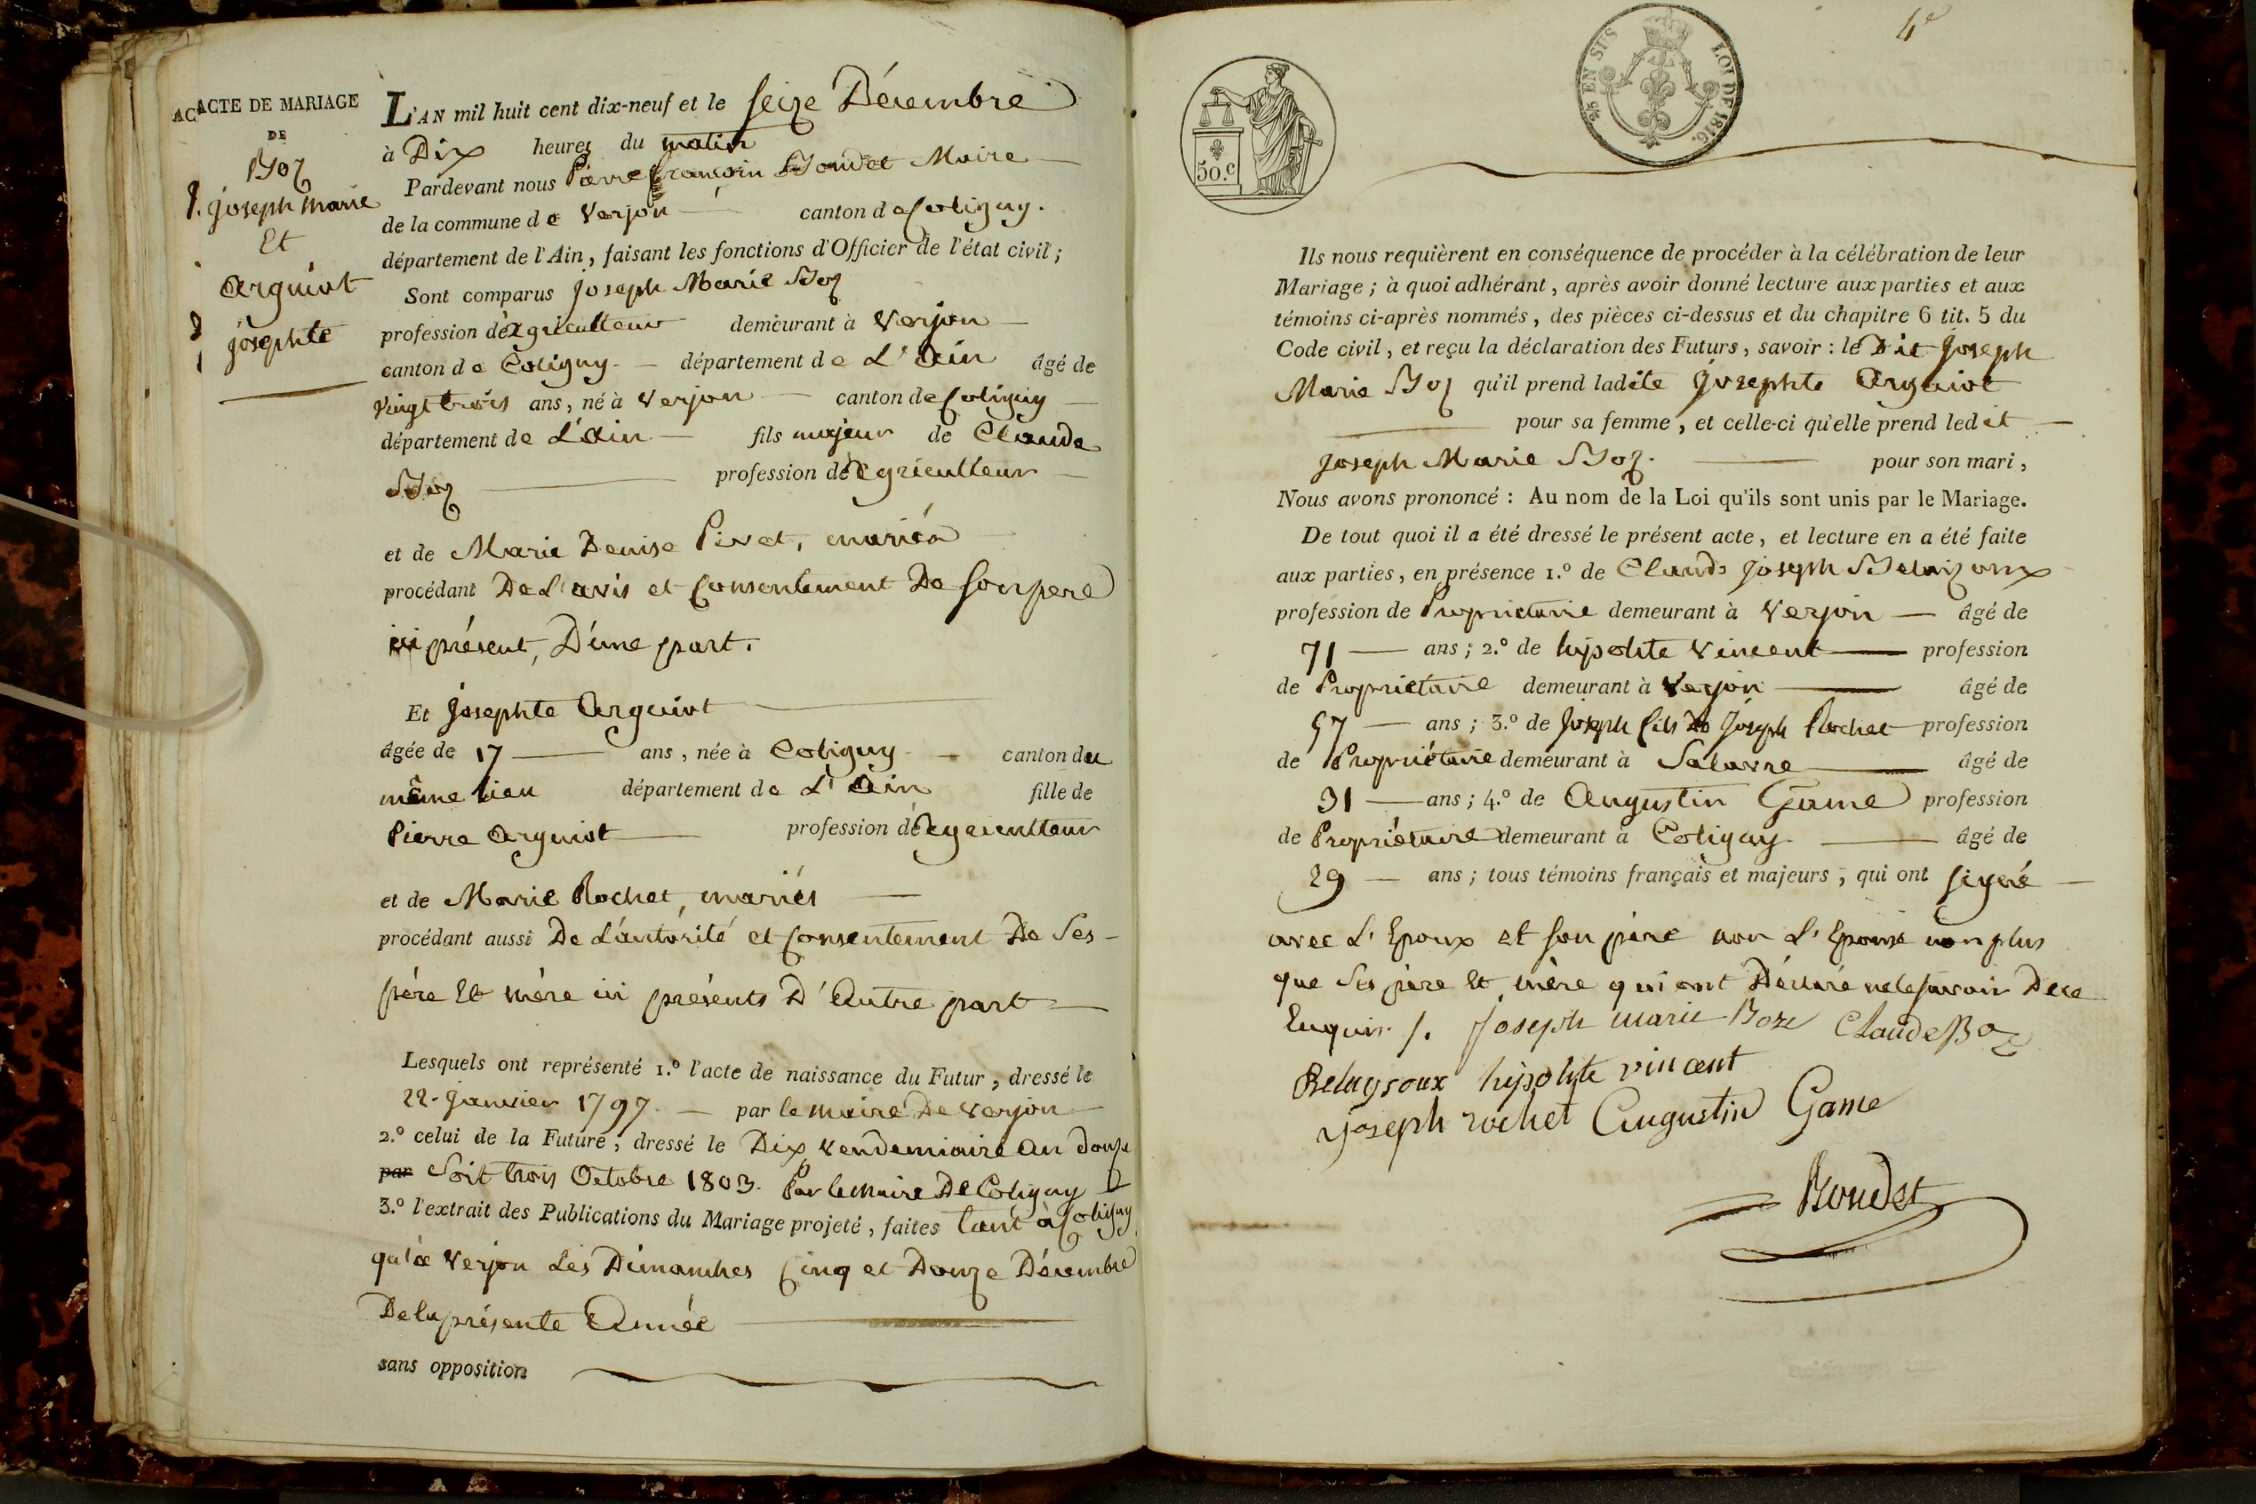 ACTE DE MARIAGE
DE
Boz
joseph marie
Et
Arguiot
josephte
L'AN mil huit cent dix-neuf et le seize Décembre
à Dix heures du matin
Pardevant nous Pierre françois Boudet Maire
de la commune de Verjon canton de Coligny.
département de l'Ain, faisant les fonctions d'Officier de l'état civil;
Sont comparus joseph Marie Boz
profession d'agriculteur demeurant à Verjon
canton de Coligny département de L'Ain âgé de
vingt trois ans, né à Verjon canton de Coligny
département de L'Ain fils majeur de Claude
Boz profession d'agriculteur
et de Marie Denise Pivet, mariés
procédant De L'avis et Consentement De son pere
ici présent, D'une part.
Et Josephte Arguiot
âgée de 17 ans, née à Coligny canton du
même lieu département de L'Ain fille de
Pierre Arguiot profession d'agriculteur
et de Marie Rochet, mariés
procédant aussi De L'autorité et Consentement De Ses
père Et mère ici présents D'Autre part
Lesquels ont représenté 1.º l'acte de naissance du Futur, dressé le
22. janvier 1797. par le maire De Verjon
2.º celui de la Future, dressé le Dix Vendemiaire an douze
par Soit trois Octobre 1803. Par le Maire De Coligny
3.º l'extrait des Publications du Mariage projeté, faites tant à Coligny
qu'à Verjon Les Dimanches Cinq et Douze Décembre
De la présente Année
sans opposition
4e
50.c
EN SUS LOI DE 1816.
Ils nous requièrent en conséquence de procéder à la célébration de leur
Mariage; à quoi adhérant, après avoir donné lecture aux parties et aux
témoins ci-après nommés, des pièces ci-dessus et du chapitre 6 tit. 5 du
Code civil, et reçu la déclaration des Futurs, savoir: le Dit Joseph
Marie Boz qu'il prend ladite Josephte Arguiot
pour sa femme, et celle-ci qu'elle prend ledit
Joseph Marie Boz. pour son mari,
Nous avons prononcé: Au nom de la Loi qu'ils sont unis par le Mariage.
De tout quoi il a été dressé le présent acte, et lecture en a été faite
aux parties, en présence 1.º de Claude Joseph
profession de Propriétaire demeurant à Verjon âgé de
71 ans; 2.º de hipolite Vincent profession
de Propriétaire demeurant à Verjon âgé de
57 ans; 3.º de Joseph fils De Joseph Rochet profession
de Propriétaire demeurant à Salavre âgé de
31 ans; 4.º de Augustin Game profession
de Propriétaire demeurant à Coligny âgé de
29 ans; tous témoins français et majeurs, qui ont signé
avec L'Epoux et son père non L'Epouse non plus
que Ses père Et mère qui ont Déclaré ne le savoir De ce
Enquis /. Joseph marie Boze Claude Boz
hipolyte vincent
joseph rochet Augustin Game
Boudet